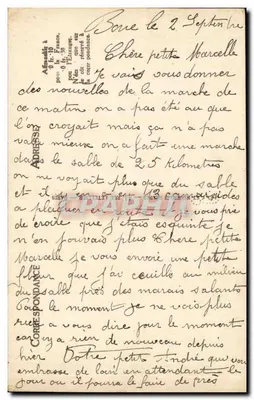 Bone le 2 Septembre
Chère petite Marcelle
Je vais vous donner
des nouvelles de la marche de
ce matin on a pas été au que
l'on croyait mais ça n'a pas
valu mieux on a fait une marche
dans le sable de 25 Kilometres
on ne voyait plus que du sable
et il y en a eu 13
a
de croire que j'étais esquinté je
n'en pouvais plus Chère petite
Marcelle je vous envoie une petite
fleur que j'ai cueilli au milieu
du sable près des marais salants
Pour le moment je ne vois plus
rien a vous dire pour le moment
car il y a rien de nouveau depuis
hier Votre petit André qui vous
embrasse de loin en attendant le
jour ou il pourra le faire de près
CORRESPONDANCE
ADRESSE
Affranchir à
0 fr. 10
pour la France,